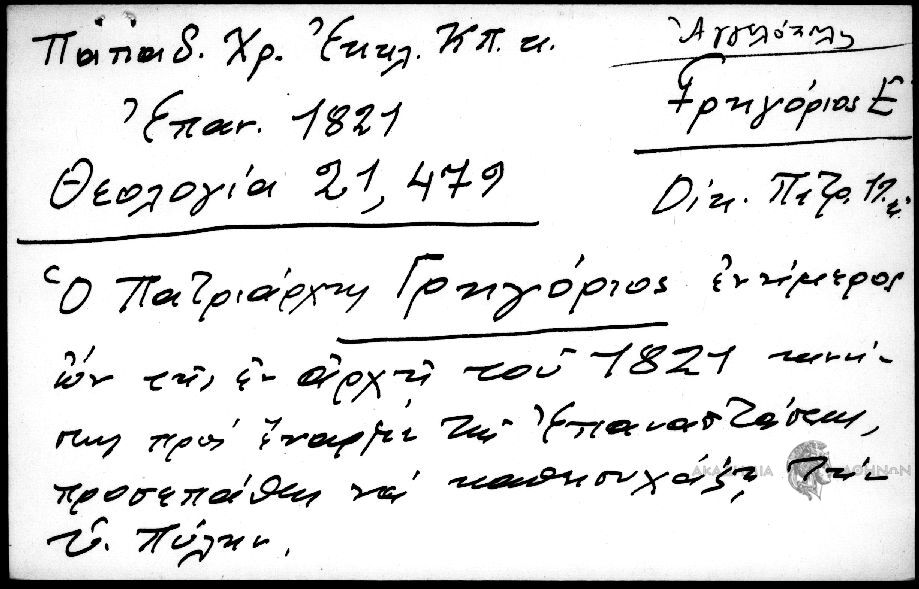 Παπαδ. Χρ. Ἐκκλ. ΚΠ. κ.
Ἐπαν. 1821
Θεολογία 21, 479
Ἀγγελόπλς
Γρηγόριος Ε'
Οἰκ. Πατρ. 17.κ.
Ὁ Πατριάρχης Γρηγόριος ἐνήμερος
ὢν τῆς ἐν ἀρχῇ τοῦ 1821 κινή-
σεως πρὸς ἔναρξιν τῆς Ἐπαναστάσεως,
προσεπάθει νὰ καθησυχάξῃ τὴν
Ὑ. Πύλην.
ΑΚΑΔΗΜΙΑ ΑΘΗΝΩΝ